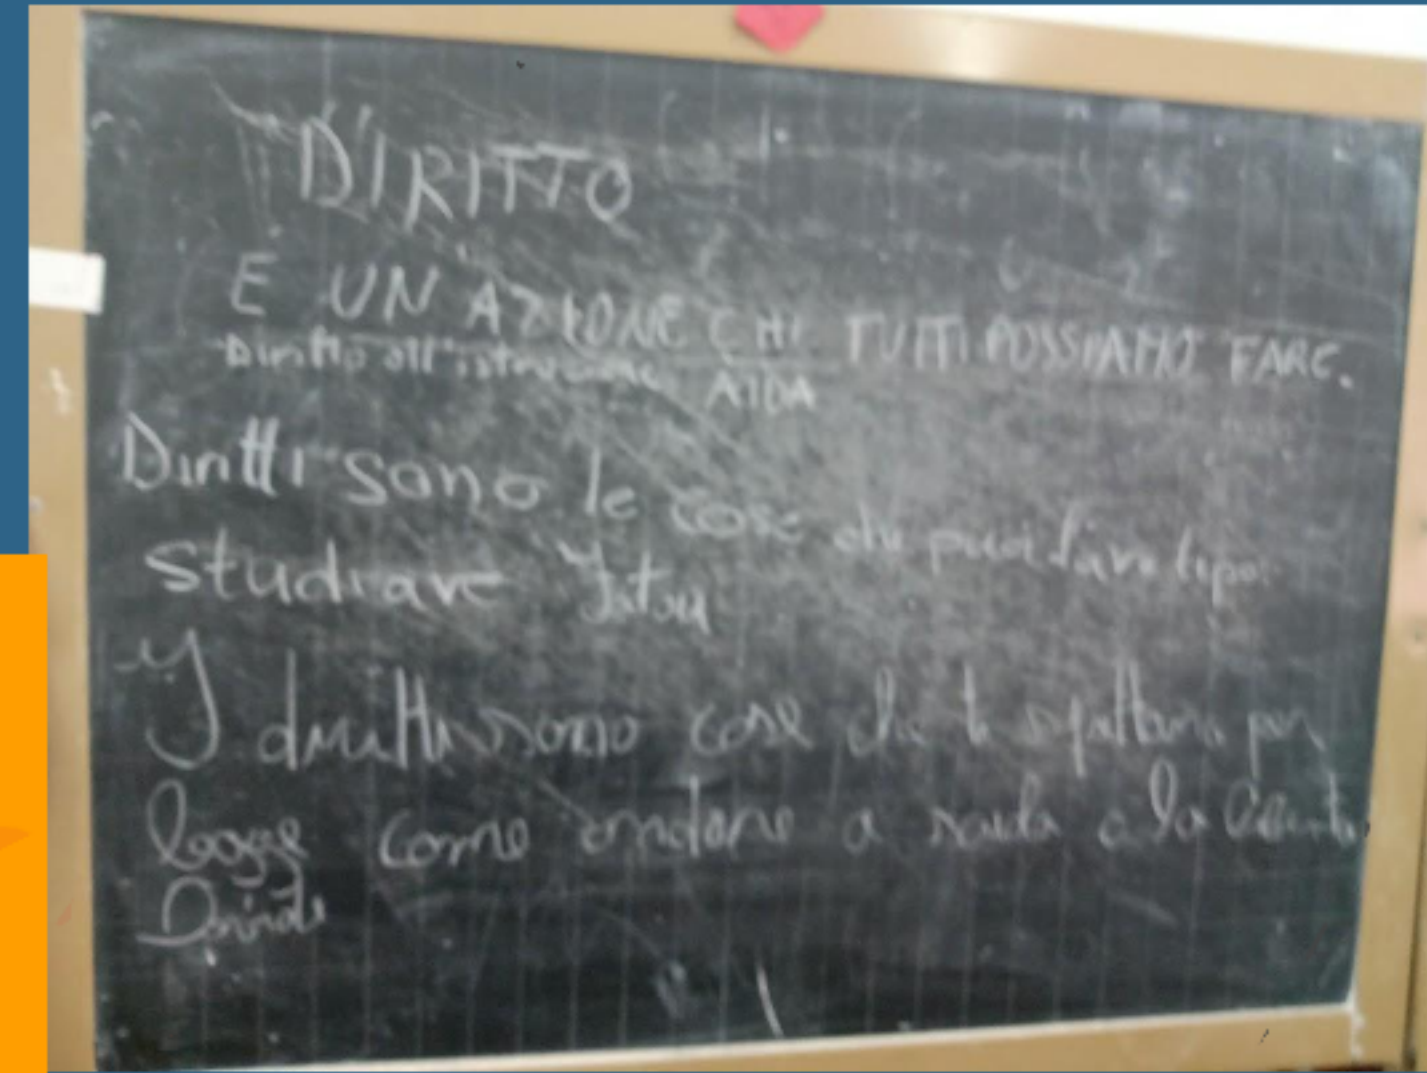 DIRITTO
E UN AZIONE CHI TUTTI POSSIAMO FARE.
Diritto all'istruzione AIDA
Diritti sono le cose che puoi fare tipo
studiare
I diritti sono cose che ti spettano per
legge come andare a e la
Davide